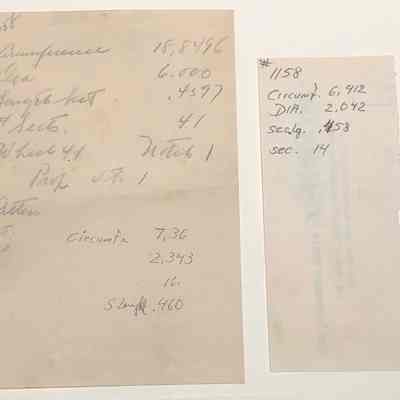 58
Circumference 18,8496
Dia 6.000
Length Sect. .4597
# Sects. 41
Wheel 41 Notch 1
Prop st. 1
Circumf. 7,36
2,343
16
S Length .460
# 1158
Circumf. 6,412
DIA. 2,042
sec lg. .458
sec. 14